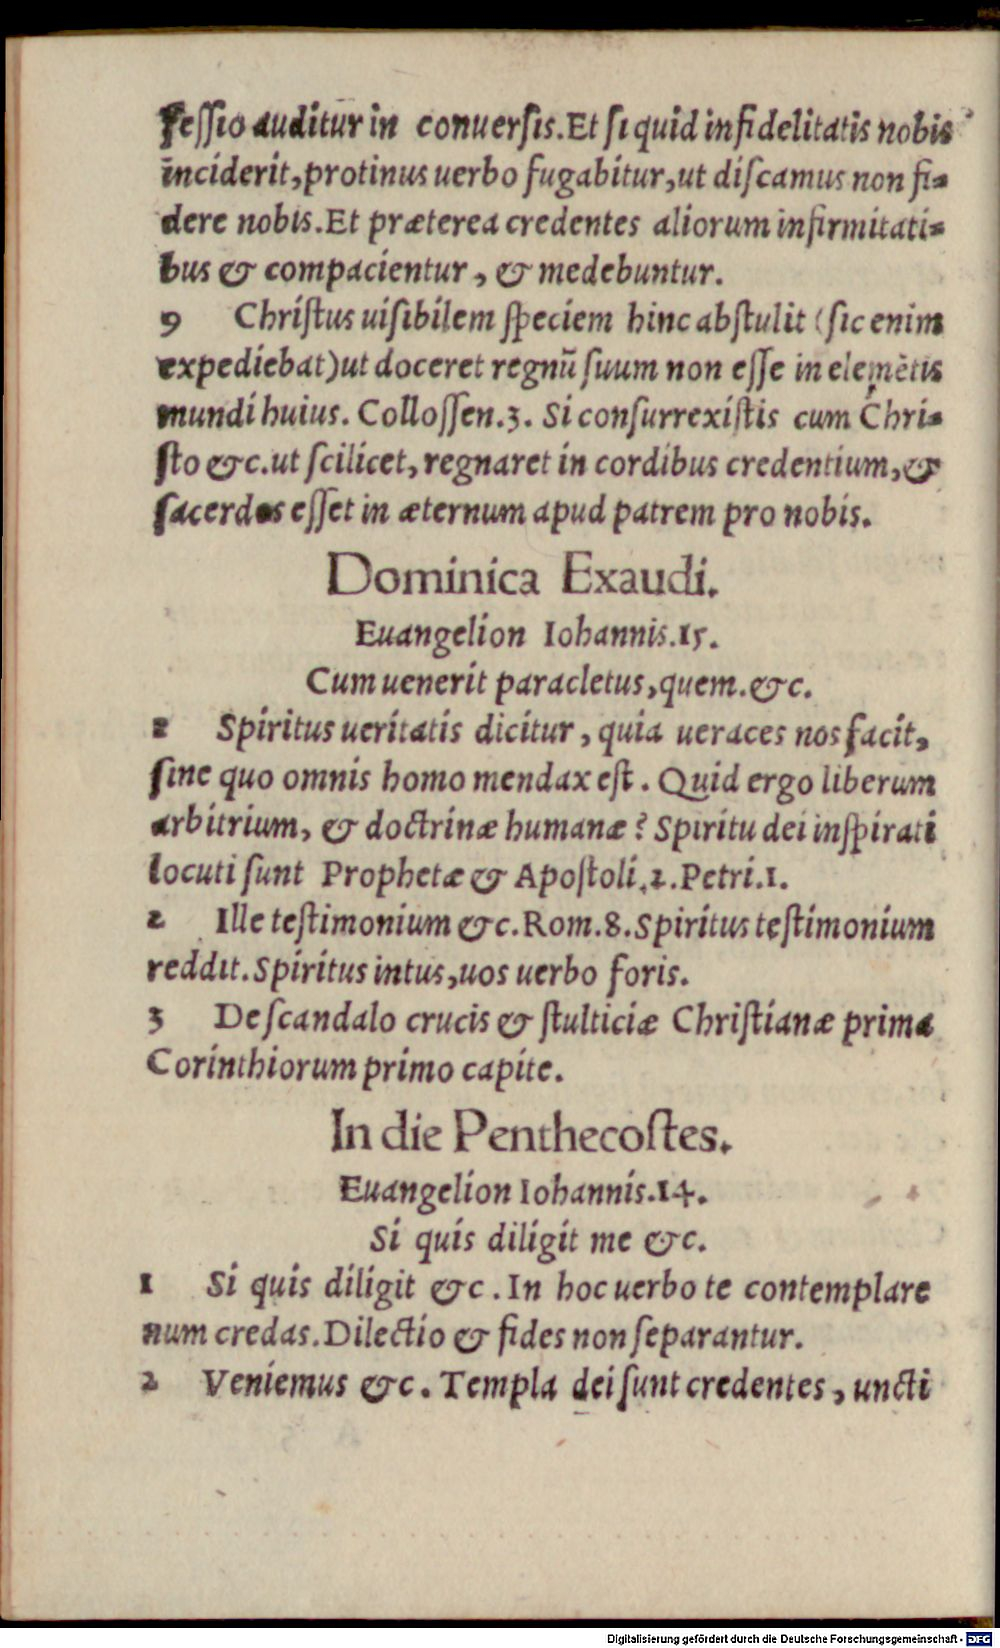 feſſio auditur in conuerſis. Et ſi quid infidelitatis nobis
inciderit, protinus uerbo fugabitur, ut diſcamus non fi=
dere nobis. Et præterea credentes aliorum infirmitati=
bus & compacientur, & medebuntur.
9 Chriſtus uiſibilem ſpeciem hinc abſtulit (ſic enim
expediebat) ut doceret regnū ſuum non eſſe in elemētis
mundi huius. Colloſſen.3. Si conſurrexiſtis cum Chri=
ſto &c. ut ſcilicet, regnaret in cordibus credentium, &
ſacerdos eſſet in æternum apud patrem pro nobis.
Dominica Exaudi.
Euangelion Iohannis.15.
Cum uenerit paracletus, quem. &c.
1 Spiritus ueritatis dicitur, quia ueraces nos facit,
ſine quo omnis homo mendax eſt. Quid ergo liberum
arbitrium, & doctrinæ humanæ? Spiritu dei inſpirati
locuti ſunt Prophetæ & Apoſtoli.2.Petri.1.
2 Ille teſtimonium &c. Rom.8. Spiritus teſtimonium
reddit. Spiritus intus, uos uerbo foris.
3 De ſcandalo crucis & ſtulticiæ Chriſtianæ prima
Corinthiorum primo capite.
In die Penthecoſtes.
Euangelion Iohannis.14.
Si quis diligit me &c.
1 Si quis diligit &c. In hoc uerbo te contemplare
num credas. Dilectio & fides non ſeparantur.
2 Veniemus &c. Templa dei ſunt credentes, uncti
Digitalisierung gefördert durch die Deutsche Forschungsgemeinschaft - DFG